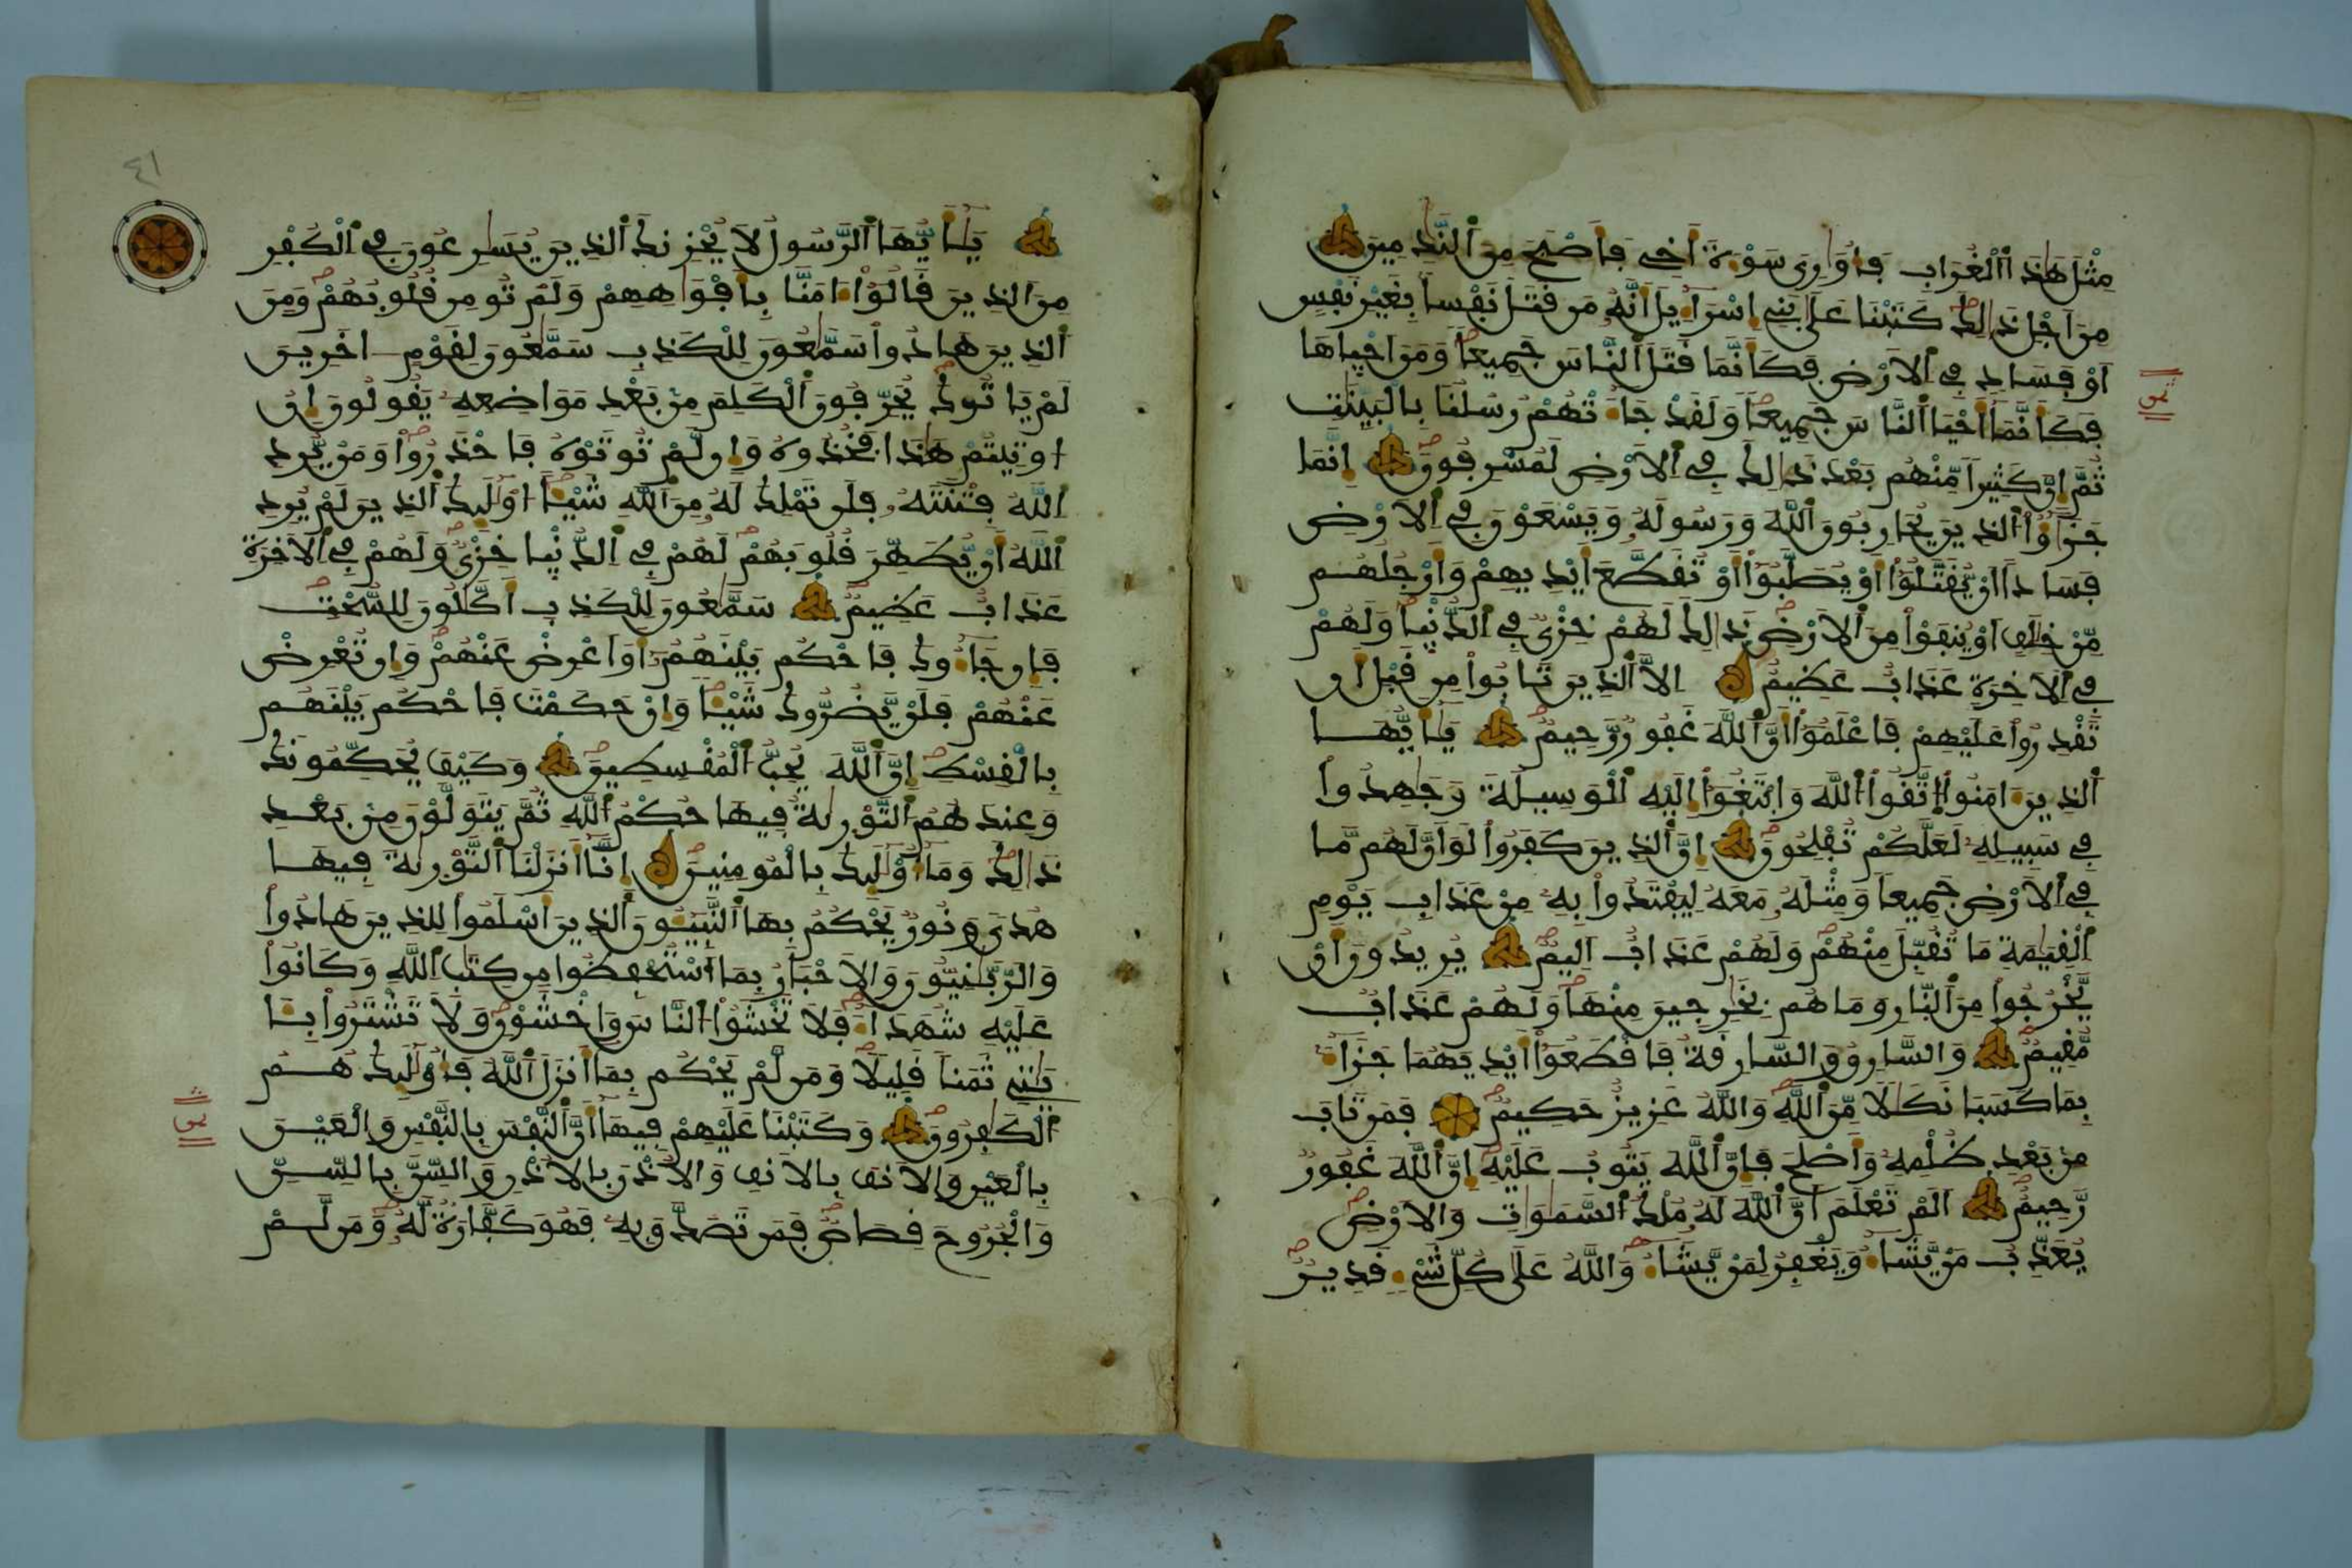 مِثْلَ هَٰذَا اَ۬لْغُرَابِ فَأُوَٰرِيَ سَوْءَةَ أَخِے فَأَصْبَحَ مِنَ اَ۬لنَّٰدِمِينَ
مِنَ اَجْلِ ذَٰلِكَ كَتَبْنَا عَلَىٰ بَنِے إِسْرَآءِيلَ أَنَّهُۥ مَن قَتَلَ نَفْساَۢ بِغَيْرِ نَفْسٍ
اَوْ فَسَادٖ فِے اِ۬لَارْضِ فَكَأَنَّمَا قَتَلَ اَ۬لنَّاسَ جَمِيعاٗ وَمَنَ اَحْيَاهَا
فَكَأَنَّمَا أَحْيَا اَ۬لنَّاسَ جَمِيعاٗ وَلَقَدْ جَآءَتْهُمْ رُسُلُنَا بِالْبَيِّنَٰتِ
ثُمَّ إِنَّ كَثِيراٗ مِّنْهُم بَعْدَ ذَٰلِكَ فِے اِ۬لَارْضِ لَمُسْرِفُونَ إِنَّمَا
جَزَٰٓؤُاْ اُ۬لذِينَ يُحَارِبُونَ اَ۬للَّهَ وَرَسُولَهُۥ وَيَسْعَوْنَ فِے اِ۬لَارْضِ
فَسَاداً اَنْ يُّقَتَّلُوٓاْ أَوْ يُصَلَّبُوٓاْ أَوْ تُقَطَّعَ أَيْدِيهِمْ وَأَرْجُلُهُم
مِّنْ خِلَٰفٍ اَوْ يُنفَوْاْ مِنَ اَ۬لَارْضِ ذَٰلِكَ لَهُمْ خِزْيٞ فِے اِ۬لدُّنْيَا وَلَهُمْ
فِے اِ۬لَاخِرَةِ عَذَابٌ عَظِيمٌ اِلَّا اَ۬لذِينَ تَابُواْ مِن قَبْلِ أَن
تَقْدِرُواْ عَلَيْهِمْ فَاعْلَمُوٓاْ أَنَّ اَ۬للَّهَ غَفُورٞ رَّحِيمٞ يَٰٓأَيُّهَا
اَ۬لذِينَ ءَامَنُواْ اُ۪تَّقُواْ اُ۬للَّهَ وَابْتَغُوٓاْ إِلَيْهِ اِ۬لْوَسِيلَةَ وَجَٰهِدُواْ
فِے سَبِيلِهِۦ لَعَلَّكُمْ تُفْلِحُونَ إِنَّ اَ۬لذِينَ كَفَرُواْ لَوَ اَنَّ لَهُم مَّا
فِے اِ۬لَارْضِ جَمِيعاٗ وَمِثْلَهُۥ مَعَهُۥ لِيَفْتَدُواْ بِهِۦ مِنْ عَذَابِ يَوْمِ
اِ۬لْقِيَٰمَةِ مَا تُقُبِّلَ مِنْهُمْ وَلَهُمْ عَذَابٌ اَلِيمٞ يُرِيدُونَ أَنْ
يَّخْرُجُواْ مِنَ اَ۬لنَّارِ وَمَا هُم بِخَٰرِجِينَ مِنْهَا وَلَهُمْ عَذَابٞ
مُّقِيمٞ وَالسَّارِقُ وَالسَّارِقَةُ فَاقْطَعُوٓاْ أَيْدِيَهُمَا جَزَآءَۢ
بِمَا كَسَبَا نَكَٰلاٗ مِّنَ اَ۬للَّهِ وَاللَّهُ عَزِيزٌ حَكِيمٞ فَمَن تَابَ
مِنۢ بَعْدِ ظُلْمِهِۦ وَأَصْلَحَ فَإِنَّ اَ۬للَّهَ يَتُوبُ عَلَيْهِ إِنَّ اَ۬للَّهَ غَفُورٞ
رَّحِيمٌ اَلَمْ تَعْلَمَ اَنَّ اَ۬للَّهَ لَهُۥ مُلْكُ اُ۬لسَّمَٰوَٰتِ وَالَارْضِ
يُعَذِّبُ مَنْ يَّشَآءُ وَيَغْفِرُ لِمَنْ يَّشَآءُ وَاللَّهُ عَلَىٰ كُلِّ شَےْءٖ قَدِيرٞ
ثمن
٤١
يَٰٓأَيُّهَا اَ۬لرَّسُولُ لَا يُحْزِنكَ اَ۬لذِينَ يُسَٰرِعُونَ فِے اِ۬لْكُفْرِ
مِنَ اَ۬لذِينَ قَالُوٓاْ ءَامَنَّا بِأَفْوَٰهِهِمْ وَلَمْ تُومِن قُلُوبُهُمْ وَمِنَ
اَ۬لذِينَ هَادُواْ سَمَّٰعُونَ لِلْكَذِبِ سَمَّٰعُونَ لِقَوْمٍ اٰخَرِينَ
لَمْ يَاتُوكَ يُحَرِّفُونَ اَ۬لْكَلِمَ مِنۢ بَعْدِ مَوَاضِعِهِۦ يَقُولُونَ إِنُ
اُوتِيتُمْ هَٰذَا فَخُذُوهُ وَإِن لَّمْ تُوتَوْهُ فَاحْذَرُواْ وَمَنْ يُّرِدِ
اِ۬للَّهُ فِتْنَتَهُۥ فَلَن تَمْلِكَ لَهُۥ مِنَ اَ۬للَّهِ شَيْـٔاً اُوْلَٰٓئِكَ اَ۬لذِينَ لَمْ يُرِدِ
اِ۬للَّهُ أَنْ يُّطَهِّرَ قُلُوبَهُمْ لَهُمْ فِے اِ۬لدُّنْيَا خِزْيٞ وَلَهُمْ فِے اِ۬لَاخِرَةِ
عَذَابٌ عَظِيمٞ سَمَّٰعُونَ لِلْكَذِبِ أَكَّٰلُونَ لِلسُّحْتِ
فَإِن جَآءُوكَ فَاحْكُم بَيْنَهُمُۥٓ أَوَ اَعْرِضْ عَنْهُمْ وَإِن تُعْرِضْ
عَنْهُمْ فَلَنْ يَّضُرُّوكَ شَيْـٔاٗ وَإِنْ حَكَمْتَ فَاحْكُم بَيْنَهُم
بِالْقِسْطِ إِنَّ اَ۬للَّهَ يُحِبُّ اُ۬لْمُقْسِطِينَ وَكَيْفَ يُحَكِّمُونَكَ
وَعِندَهُمُ اُ۬لتَّوْر۪ىٰةُ فِيهَا حُكْمُ اُ۬للَّهِ ثُمَّ يَتَوَلَّوْنَ مِنۢ بَعْدِ
ذَٰلِكَ وَمَآ أُوْلَٰٓئِكَ بِالْمُومِنِينَ إِنَّآ أَنزَلْنَا اَ۬لتَّوْر۪ىٰةَ فِيهَا
هُدىٗ وَنُورٞ يَحْكُمُ بِهَا اَ۬لنَّبِيٓـُٔونَ اَ۬لذِينَ أَسْلَمُواْ لِلذِينَ هَادُواْ
وَالرَّبَّٰنِيُّونَ وَالَاحْبَارُ بِمَا اَ۟سْتُحْفِظُواْ مِن كِتَٰبِ اِ۬للَّهِ وَكَانُواْ
عَلَيْهِ شُهَدَآءَ فَلَا تَخْشَوُاْ اُ۬لنَّاسَ وَاخْشَوْنِ وَلَا تَشْتَرُواْ بِـَٔا
يَٰتِے ثَمَناٗ قَلِيلاٗ وَمَن لَّمْ يَحْكُم بِمَآ أَنزَلَ اَ۬للَّهُ فَأُوْلَٰٓئِكَ هُمُ
اُ۬لْكَٰفِرُونَ وَكَتَبْنَا عَلَيْهِمْ فِيهَآ أَنَّ اَ۬لنَّفْسَ بِالنَّفْسِ وَالْعَيْنَ
بِالْعَيْنِ وَالَانفَ بِالَانفِ وَالُاذْنَ بِالُاذْنِ وَالسِّنَّ بِالسِّنِّ
وَالْجُرُوحَ قِصَاصٞ فَمَن تَصَدَّقَ بِهِۦ فَهُوَ كَفَّارَةٞ لَّهُۥ وَمَن لَّمْ
ثمن